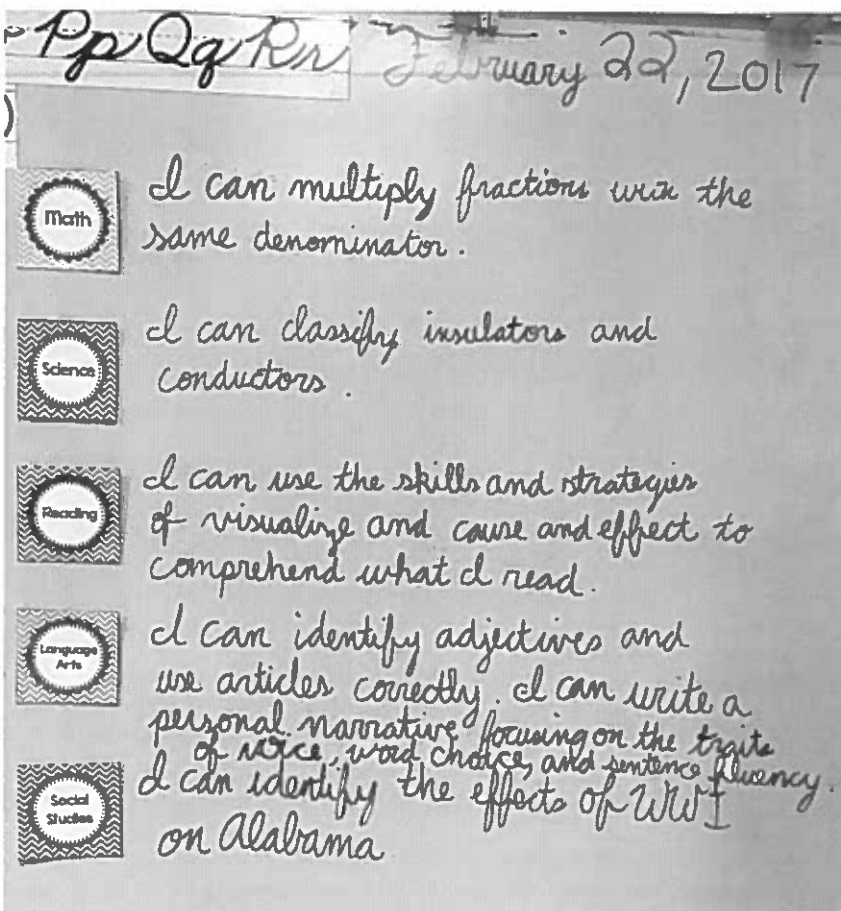 Pp Qq Rr February 22, 2017
Math
I can multiply fractions with the
same denominator.
Science
I can classify insulators and
conductors.
Reading
I can use the skills and strategies
of visualize and cause and effect to
comprehend what I read.
Language
Arts
I can identify adjectives and
use articles correctly. I can write a
personal narrative focusing on the traits
of voice, word choice, and sentence fluency.
Social
Studies
I can identify the effects of WWI
on Alabama